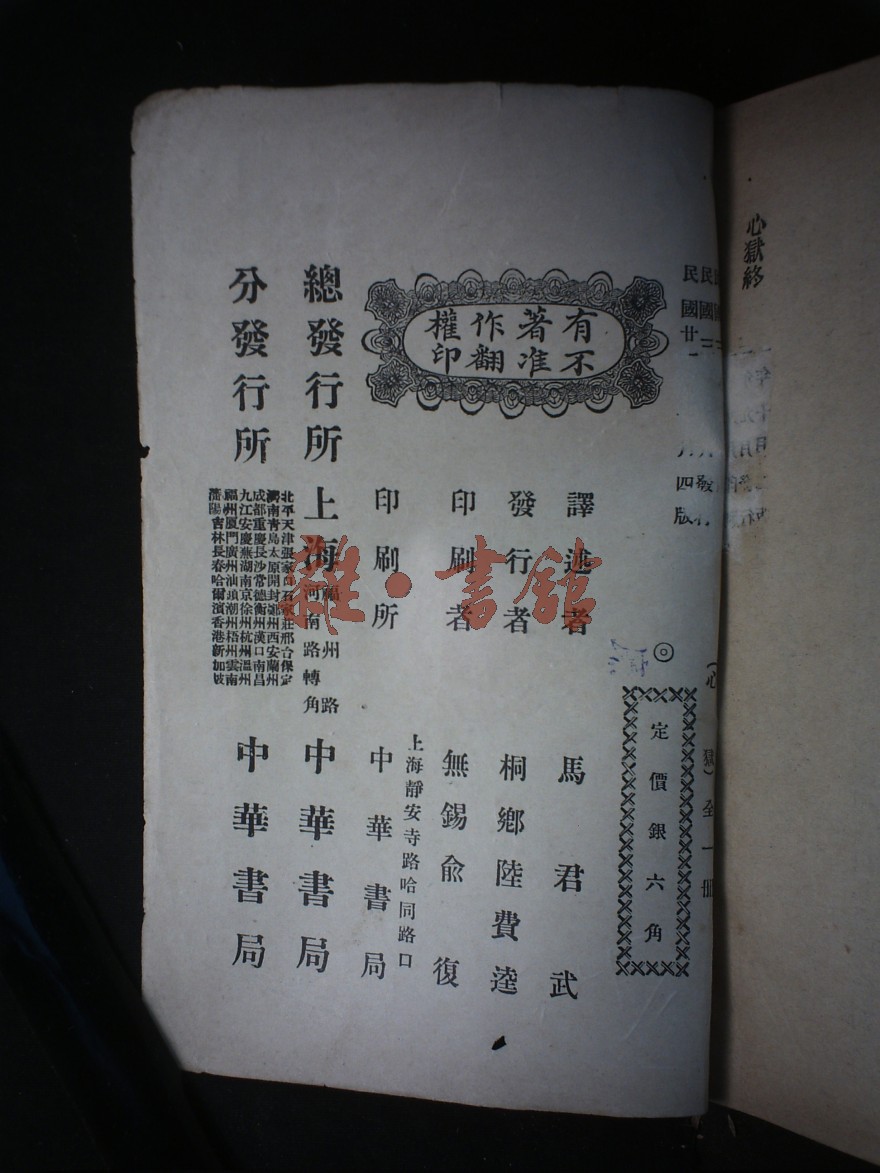 心獄終
民國
民國三 發行
民國廿 月四版
（心獄）全一冊
◎定價銀六角
有著作權
不准翻印
譯述者 馬君武
發行者 桐鄉陸費逵
印刷者 無錫俞復
印刷所 上海靜安寺路哈同路口 中華書局
總發行所 上海福州路河南路轉角 中華書局
分發行所 中華書局
北平天津張家口石家莊邢台保定
濟南青島太原開封鄭州西安蘭州
成都重慶長沙常德衡州漢口南昌
九江安慶蕪湖南京徐州杭州溫州
福州廈門廣州汕頭潮州梧州雲南
瀋陽吉林長春哈爾濱香港新加坡
雜·書館